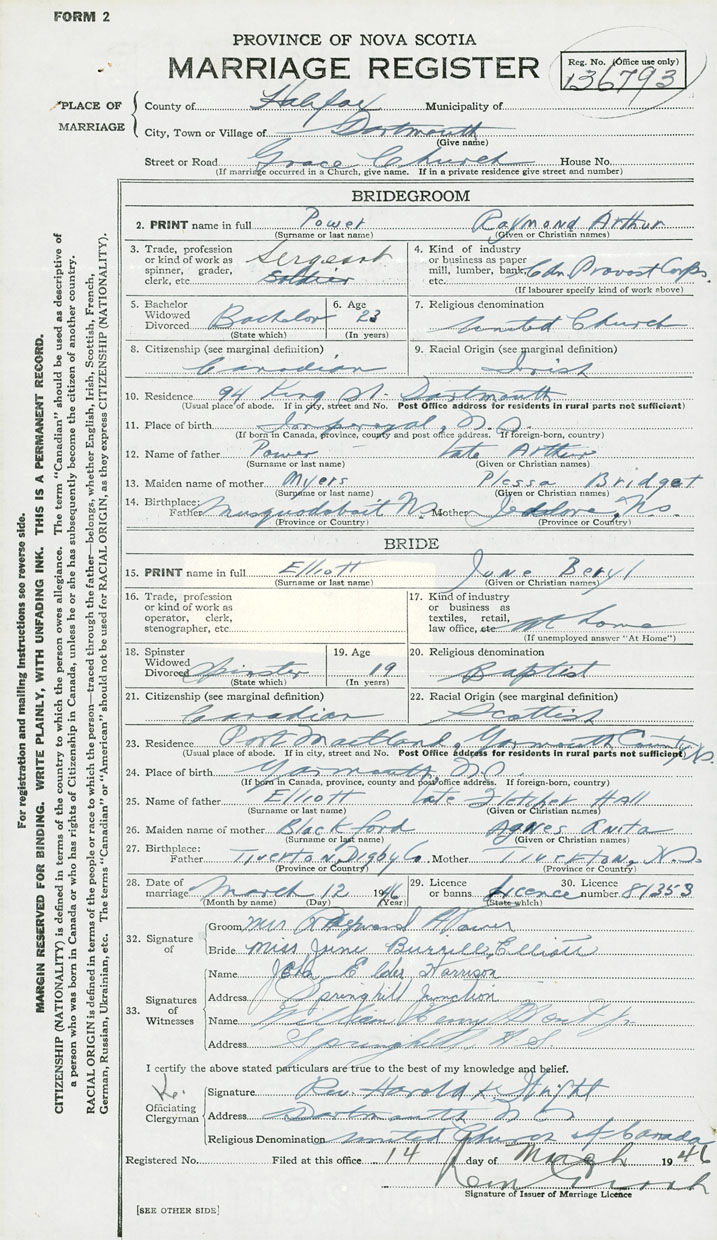 FORM 2
PROVINCE OF NOVA SCOTIA
MARRIAGE REGISTER
Reg. No. (Office use only)
136793
PLACE OF MARRIAGE
County of Halifax Municipality of
City, Town or Village of Dartmouth
(Give name)
Street or Road Grace Church House No.
(If marriage occurred in a Church, give name. If in a private residence give street and number)
BRIDEGROOM
2. PRINT name in full Power Raymond Arthur
(Surname or last name) (Given or Christian names)
3. Trade, profession or kind of work as spinner, grader, clerk, etc. Sergeant Soldier
4. Kind of industry or business as paper mill, lumber, bank, etc. Cdn Provost Corps.
(If labourer specify kind of work above)
5. Bachelor Widowed Divorced Bachelor
(State which)
6. Age 23
(In years)
7. Religious denomination
United Church
8. Citizenship (see marginal definition)
Canadian
9. Racial Origin (see marginal definition)
Irish
10. Residence 94 King St. Dartmouth
(Usual place of abode. If in city, street and No. Post Office address for residents in rural parts not sufficient)
11. Place of birth N.S.
(If born in Canada, province, county and post office address. If foreign-born, country)
12. Name of father Power late Arthur
(Surname or last name) (Given or Christian names)
13. Maiden name of mother Myers Plessa Bridget
(Surname or last name) (Given or Christian names)
14. Birthplace:
Father Musquodoboit N.S. Mother Jeddore, N.S.
(Province or Country) (Province or Country)
BRIDE
15. PRINT name in full Elliott June Beryl
(Surname or last name) (Given or Christian names)
16. Trade, profession or kind of work as operator, clerk, stenographer, etc.
17. Kind of industry or business as textiles, retail, law office, etc. at home
(If unemployed answer "At Home")
18. Spinster Widowed Divorced Spinster
(State which)
19. Age 19
(In years)
20. Religious denomination
Baptist
21. Citizenship (see marginal definition)
Canadian
22. Racial Origin (see marginal definition)
Scottish
23. Residence Port Maitland, Yarmouth County N.S.
(Usual place of abode. If in city, street and No. Post Office address for residents in rural parts not sufficient)
24. Place of birth Yarmouth, N.S.
(If born in Canada, province, county and post office address. If foreign-born, country)
25. Name of father Elliott late Fletcher Hall
(Surname or last name) (Given or Christian names)
26. Maiden name of mother Blackford Agnes Anita
(Surname or last name) (Given or Christian names)
27. Birthplace:
Father Tiverton, Digby Co. Mother Tiverton, N.S.
(Province or Country) (Province or Country)
28. Date of marriage March 12 1946
(Month by name) (Day) (Year)
29. Licence or banns Licence
(State which)
30. Licence number 81353
32. Signature of
Groom Power
Bride Miss June Elliott
33. Signatures of Witnesses
Name Elder Harrison
Address Springhill Junction
Name William Henry
Address Springhill N.S.
I certify the above stated particulars are true to the best of my knowledge and belief.
Officiating Clergyman
Signature Rev. Harold
Address Dartmouth N.S.
Religious Denomination United Church of Canada
Registered No. Filed at this office 14 day of March 1946
Signature of Issuer of Marriage Licence
[SEE OTHER SIDE]
For registration and mailing instructions see reverse side.
MARGIN RESERVED FOR BINDING. WRITE PLAINLY, WITH UNFADING INK. THIS IS A PERMANENT RECORD.
CITIZENSHIP (NATIONALITY) is defined in terms of the country to which the person owes allegiance. The term "Canadian" should be used as descriptive of
a person who was born in Canada or who has rights of Citizenship in Canada, unless he or she has subsequently become the citizen of another country.
RACIAL ORIGIN is defined in terms of the people or race to which the person—traced through the father—belongs, whether English, Irish, Scottish, French,
German, Russian, Ukrainian, etc. The terms "Canadian" or "American" should not be used for RACIAL ORIGIN, as they express CITIZENSHIP (NATIONALITY).